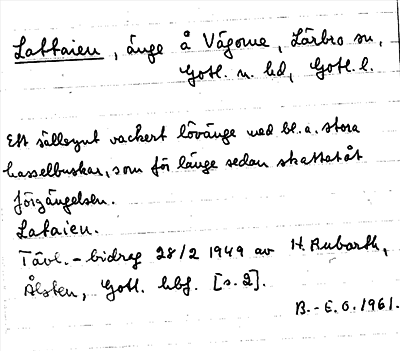 Lattaien, änge å Vägome, Lärbro sn,
Gotl. n. hd, Gotl. l.
Ett sällsynt vackert lövänge med bl. a. stora
hasselbuskar, som för länge sedan skattat åt
förgängelsen.
Lataien.
Tävl.-bidrag 28/2 1949 av H. Rubarth,
Ålsten, Gotl. hbf. [s. 2].
B.-E.O. 1961.